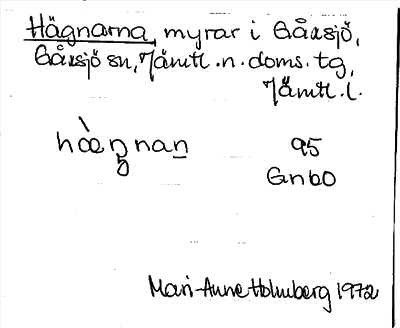 Hägnarna, myrar i Gåxsjö,
Gåxsjö sn, Jämtl. n. doms. tg,
Jämtl. l.
hæ̀ŋnan̲ 95
Gnbo
Mari-Anne Holmberg 1972